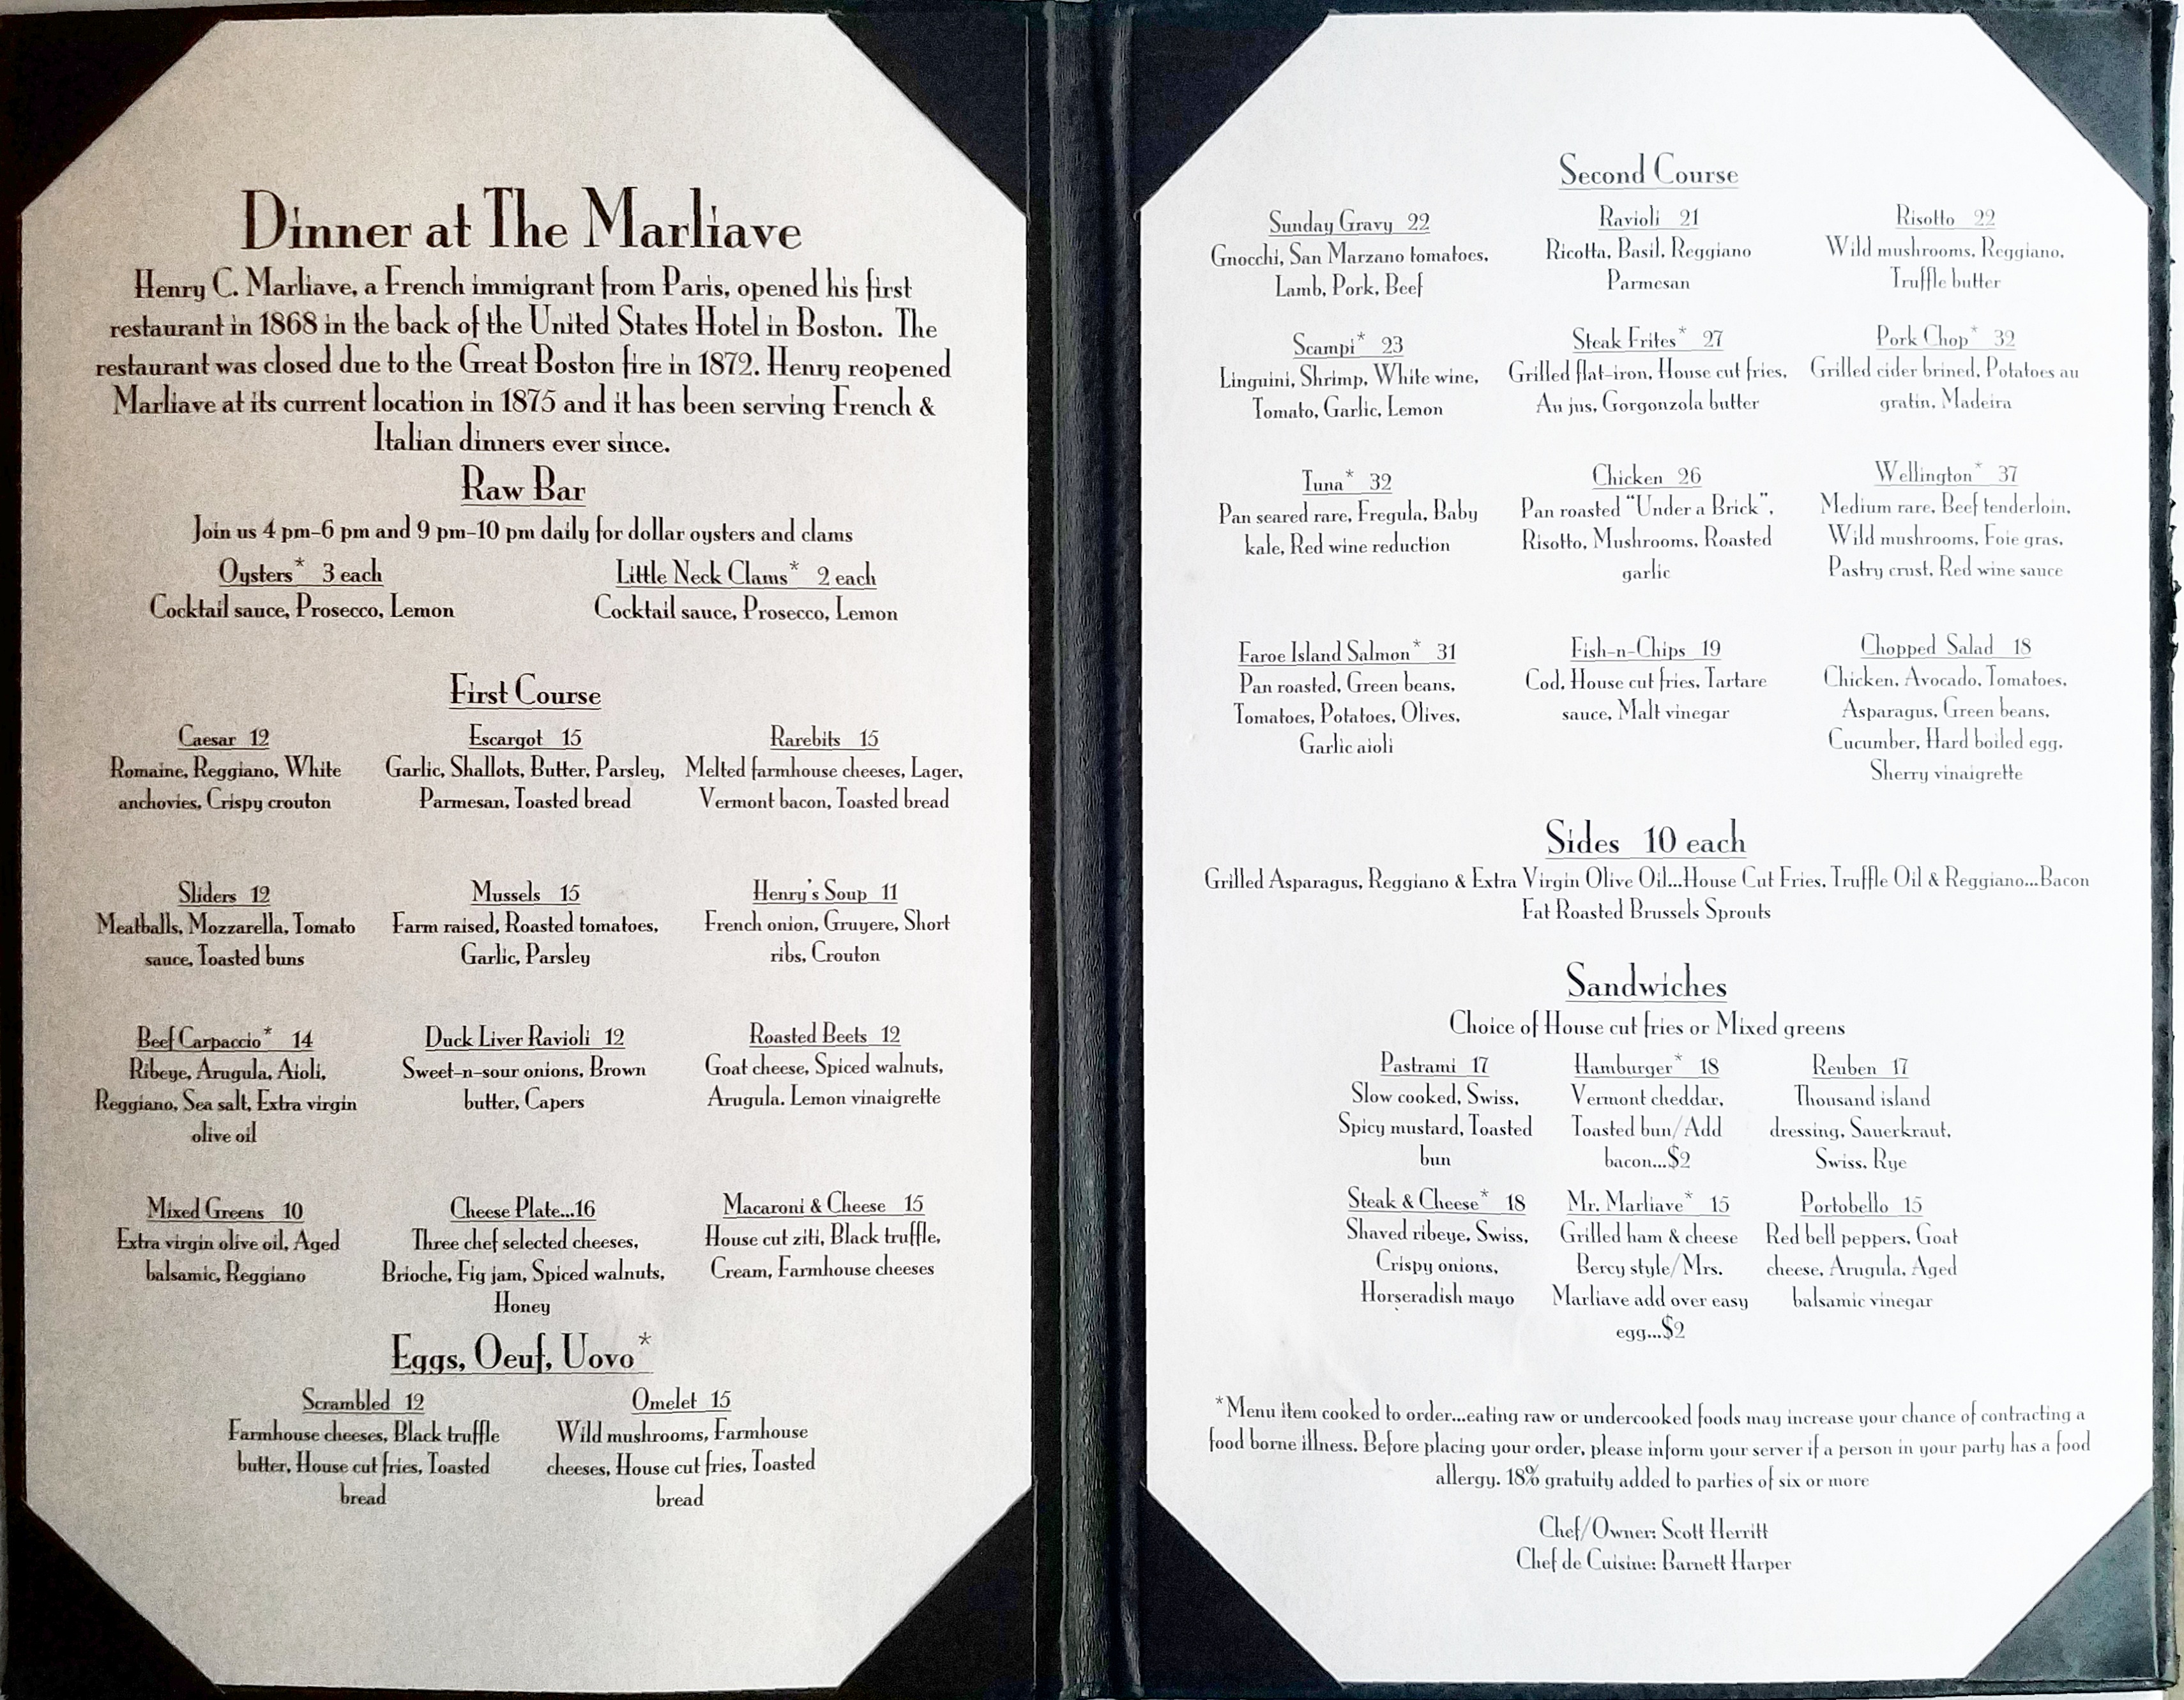 Dinner at The Marliave
Henry C. Marliave, a French immigrant from Paris, opened his first
restaurant in 1868 in the back of the United States Hotel in Boston. The
restaurant was closed due to the Great Boston fire in 1872. Henry reopened
Marliave at its current location in 1875 and it has been serving French &
Italian dinners ever since.
Raw Bar
Join us 4 pm-6 pm and 9 pm-10 pm daily for dollar oysters and clams
Oysters* 3 each
Cocktail sauce, Prosecco, Lemon
Little Neck Clams* 2 each
Cocktail sauce, Prosecco, Lemon
First Course
Caesar 12
Romaine, Reggiano, White
anchovies, Crispy crouton
Escargot 15
Garlic, Shallots, Butter, Parsley,
Parmesan, Toasted bread
Rarebits 15
Melted farmhouse cheeses, Lager,
Vermont bacon, Toasted bread
Sliders 12
Meatballs, Mozzarella, Tomato
sauce, Toasted buns
Mussels 15
Farm raised, Roasted tomatoes,
Garlic, Parsley
Henry's Soup 11
French onion, Gruyere, Short
ribs, Crouton
Beef Carpaccio* 14
Ribeye, Arugula, Aioli,
Reggiano, Sea salt, Extra virgin
olive oil
Duck Liver Ravioli 12
Sweet-n-sour onions, Brown
butter, Capers
Roasted Beets 12
Goat cheese, Spiced walnuts,
Arugula. Lemon vinaigrette
Mixed Greens 10
Extra virgin olive oil, Aged
balsamic, Reggiano
Cheese Plate...16
Three chef selected cheeses,
Brioche, Fig jam, Spiced walnuts,
Honey
Macaroni & Cheese 15
House cut ziti, Black truffle,
Cream, Farmhouse cheeses
Eggs, Oeuf, Uovo*
Scrambled 12
Farmhouse cheeses, Black truffle
butter, House cut fries, Toasted
bread
Omelet 15
Wild mushrooms, Farmhouse
cheeses, House cut fries, Toasted
bread
Second Course
Sunday Gravy 22
Gnocchi, San Marzano tomatoes,
Lamb, Pork, Beef
Ravioli 21
Ricotta, Basil, Reggiano
Parmesan
Risotto 22
Wild mushrooms, Reggiano,
Truffle butter
Scampi* 23
Linguini, Shrimp, White wine,
Tomato, Garlic, Lemon
Steak Frites* 27
Grilled flat-iron, House cut fries,
Au jus, Gorgonzola butter
Pork Chop* 32
Grilled cider brined, Potatoes au
gratin, Madeira
Tuna* 32
Pan seared rare, Fregula, Baby
kale, Red wine reduction
Chicken 26
Pan roasted "Under a Brick",
Risotto, Mushrooms, Roasted
garlic
Wellington* 37
Medium rare, Beef tenderloin,
Wild mushrooms, Foie gras,
Pastry crust, Red wine sauce
Faroe Island Salmon* 31
Pan roasted, Green beans,
Tomatoes, Potatoes, Olives,
Garlic aioli
Fish-n-Chips 19
Cod, House cut fries, Tartare
sauce, Malt vinegar
Chopped Salad 18
Chicken, Avocado, Tomatoes,
Asparagus, Green beans,
Cucumber, Hard boiled egg,
Sherry vinaigrette
Sides 10 each
Grilled Asparagus, Reggiano & Extra Virgin Olive Oil...House Cut Fries, Truffle Oil & Reggiano...Bacon
Fat Roasted Brussels Sprouts
Sandwiches
Choice of House cut fries or Mixed greens
Pastrami 17
Slow cooked, Swiss,
Spicy mustard, Toasted
bun
Hamburger* 18
Vermont cheddar,
Toasted bun/Add
bacon...$2
Reuben 17
Thousand island
dressing, Sauerkraut,
Swiss, Rye
Steak & Cheese* 18
Shaved ribeye, Swiss,
Crispy onions,
Horseradish mayo
Mr. Marliave* 15
Grilled ham & cheese
Bercy style/Mrs.
Marliave add over easy
egg...$2
Portobello 15
Red bell peppers, Goat
cheese, Arugula, Aged
balsamic vinegar
*Menu item cooked to order...eating raw or undercooked foods may increase your chance of contracting a
food borne illness. Before placing your order, please inform your server if a person in your party has a food
allergy. 18% gratuity added to parties of six or more
Chef/Owner: Scott Herritt
Chef de Cuisine: Barnett Harper